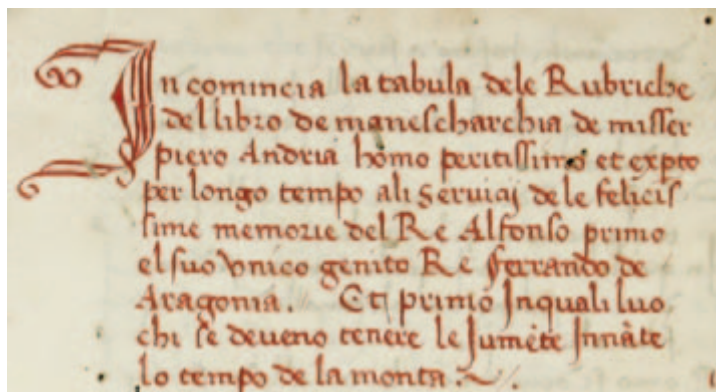 In comincia la tabula dele Rubriche
del libro de manescharchia de misser
piero Andria homo peritissimo et expto
per longo tempo ali serviaj de le felicis
sime memorie del Re Alfonso primo
el suo vnico genito Re ferrando de
Aragonia. Et primo Inquali luo
chi se deueno tenere le Jumēte Innāte
lo tempo de la monta:~